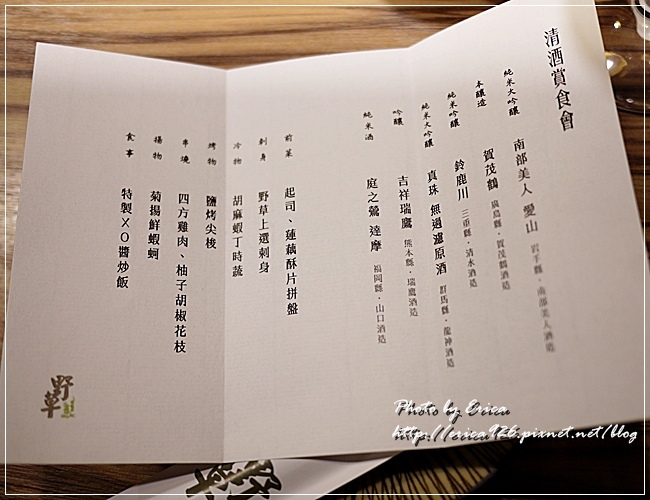 清酒賞食會
純米大吟釀 南部美人 愛山 岩手縣・南部美人酒造
本釀造 賀茂鶴 廣島縣・賀茂鶴酒造
純米吟釀 鈴鹿川 三重縣・清水酒造
純米大吟釀 真珠 無過濾原酒 群馬縣・龍神酒造
吟釀 吉祥瑞鷹 熊本縣・瑞鷹酒造
純米酒 庭之鶯 達摩 福岡縣・山口酒造
前菜 起司、蓮藕酥片拼盤
刺身 野草上選刺身
冷物 胡麻蝦丁時蔬
烤物 鹽烤尖梭
串燒 四方雞肉、柚子胡椒花枝
揚物 菊揚鮮蝦蚵
食事 特製XO醬炒飯
野草
Photo by Erica
http://erica926.pixnet.net/blog
野草